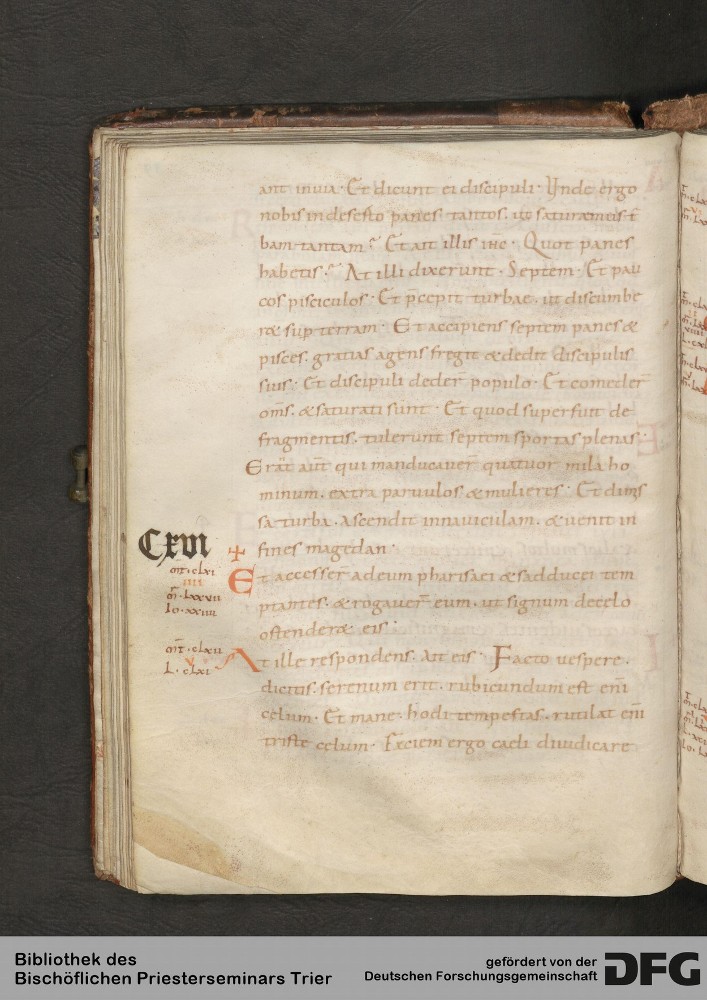 ant inuia · Et dicunt ei discipuli · Unde ergo
nobis in deserto panes tantos, ut saturemus t̄
bam tantam? Et ait illis ih̄c · Quot panes
habetis? At illi dixerunt · Septem · Et pau
cos pisciculos · Et p̄cepit turbae · ut discumbe
r& sup terram · Et accipiens septem panes &
pisces · gratias agens fregit & dedit discipulis
suis · Et discipuli deder̄ populo · Et comeder̄
om̄s · & saturati sunt · Et quod superfuit de
fragmentis · tulerunt septem sportas plenas ·
Erāt aūt qui manducauer̄ quatuor milia ho
minum · extra paruulos & mulieres · Et dimis
sa turba · Ascendit in nauiculam · & uenit in
CXVI fines magedan ·
m̄t · clxi Et accesser̄ ad eum pharisaei & sadducei tem
m̄r · lxxvii ptantes · & rogauer̄ eum · ut signum de celo
io · xxiiii ostender& eis ·
m̄t · clxii At ille respondens · Ait eis · Facto uespere ·
L · clxi dicitis · serenum erit · rubicundum est eni̅
celum · Et mane · hodi tempestas · rutilat eni̅
triste celum · Faciem ergo caeli diiudicare
Bibliothek des
Bischöflichen Priesterseminars Trier
gefördert von der
Deutschen Forschungsgemeinschaft DFG